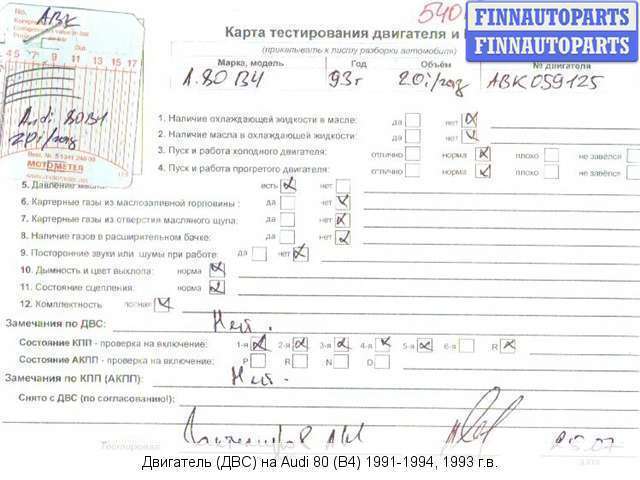 No.
ABK
5 7 9 11 13 15 17
Audi 80 B4
20i/газ
MOTOMETER
FINNAUTOPARTS
FINNAUTOPARTS
Карта тестирования двигателя и
(прикалывать к листу разборки автомобиля)
Марка, модель Год Объём № двигателя
А.80 В4 93г 20i/газ АВК 059125
1. Наличие охлаждающей жидкости в масле: да нет
2. Наличие масла в охлаждающей жидкости: да нет
3. Пуск и работа холодного двигателя: отлично норма плохо не завёлся
4. Пуск и работа прогретого двигателя: отлично норма плохо не завёлся
5. Давление масла: есть нет
6. Картерные газы из маслозаливной горловины : да нет
7. Картерные газы из отверстия масляного щупа: да нет
8. Наличие газов в расширительном бачке: да нет
9. Посторонние звуки или шумы при работе: да нет
10. Дымность и цвет выхлопа: норма
11. Состояние сцепления: норма
12. Комплектность полная
Замечания по ДВС: Нет.
Состояние КПП - проверка на включение: 1-я 2-я 3-я 4-я 5-я 6-я R
Состояние АКПП - проверка на включение: P R N D
Замечания по КПП (АКПП): Нет.
Снято с ДВС (по согласованию!):
Тестировал
25.07
Двигатель (ДВС) на Audi 80 (B4) 1991-1994, 1993 г.в.